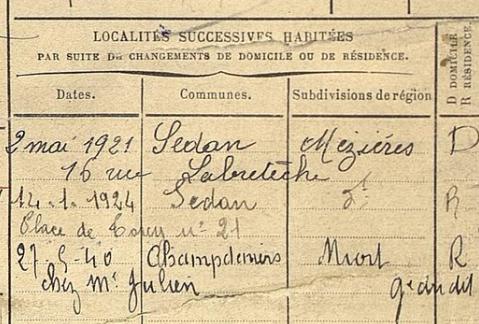 LOCALITÉS SUCCESSIVES HABITÉES
PAR SUITE DE CHANGEMENTS DE DOMICILE OU DE RÉSIDENCE.
D DOMICILE
R RÉSIDENCE.
Dates. Communes. Subdivisions de région
2 mai 1921 Sedan Mézières D
16 rue Labretèche
14.1.1924 Sedan dt R
Place de n° 21
27-5-40 Champdeniers Niort R
chez Mr Julien